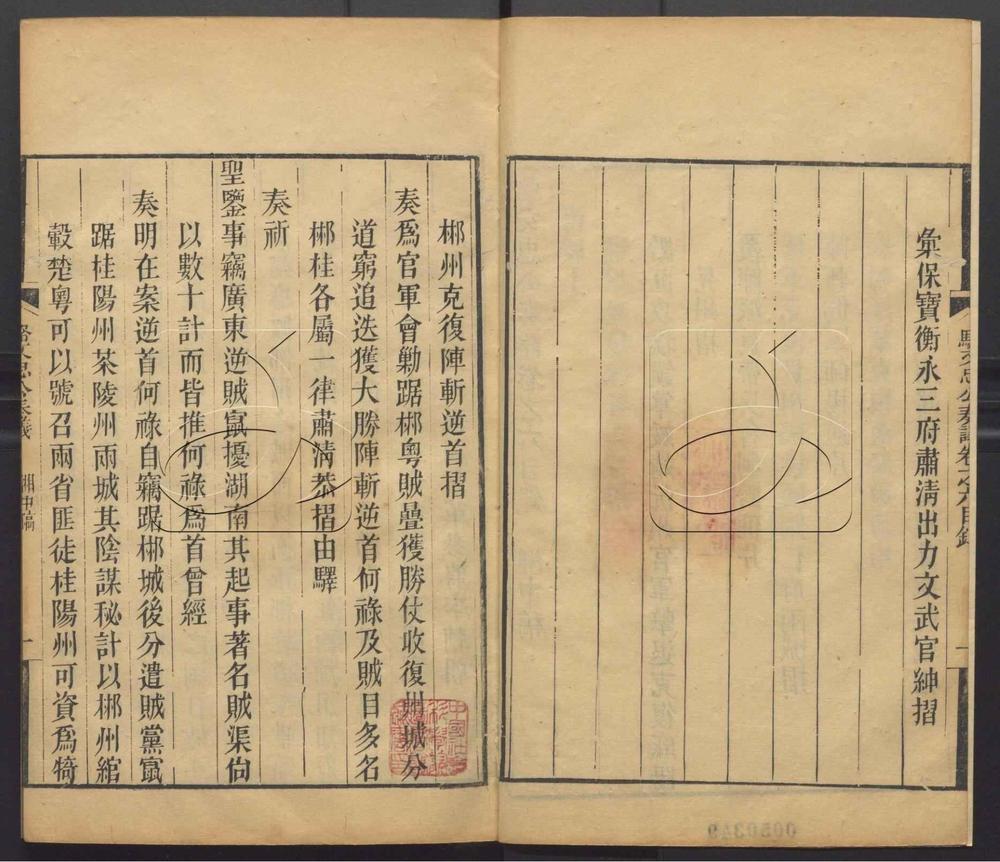 駱文忠公奏議卷之六目錄
彙保寶衡永三府肅清出力文武官紳摺
郴州克復陣斬逆首摺
奏爲官軍會勦踞郴粵賊疊獲勝仗收復州城分
道窮追迭獲大勝陣斬逆首何祿及賊目多名
郴桂各屬一律肅清恭摺由驛
奏祈
聖鑒事竊廣東逆賊竄擾湖南其起事著名賊渠尙
以數十計而皆推何祿爲首曾經
奏明在案逆首何祿自竊踞郴城後分遣賊黨竄
踞桂陽州茶陵州兩城其陰謀秘計以郴州綰
轂楚粵可以號召兩省匪徒桂陽州可資爲犄
駱文忠公奏議 湘中稿 一
0050349